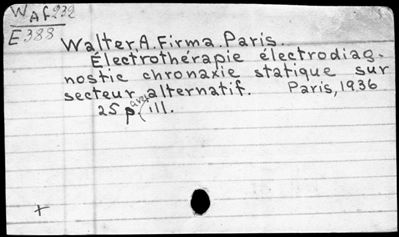 WAf232
E388
Walter, A. Firma. Paris.
Électrothérapie électrodiag-
nostic chronaxie statique sur
secteur alternatif. Paris, 1936
25 p. avec ill.
+